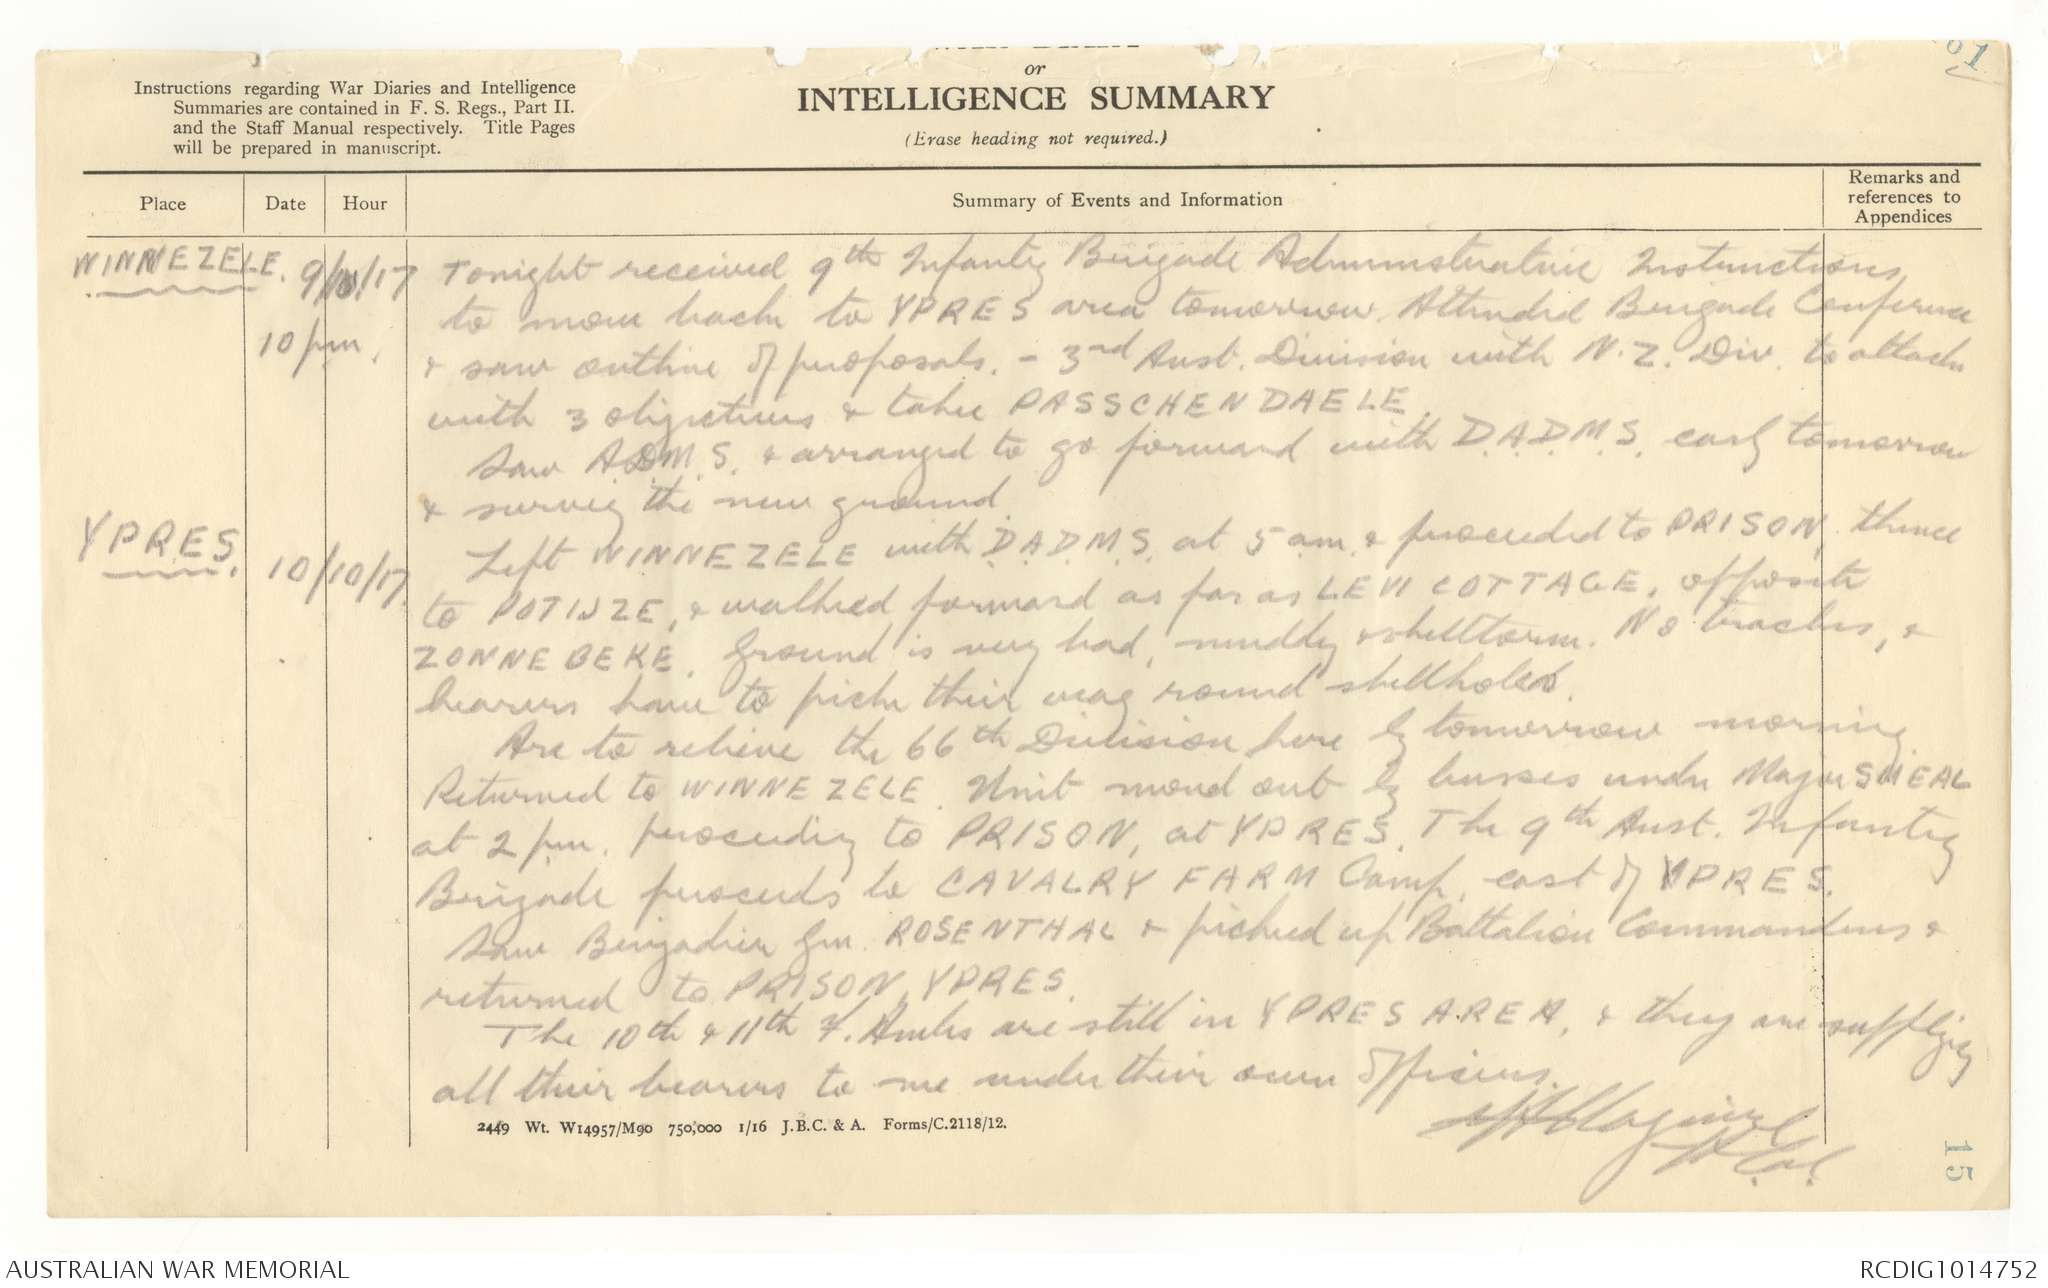 or
INTELLIGENCE SUMMARY
(Erase heading not required.)
Instructions regarding War Diaries and Intelligence
Summaries are contained in F. S. Regs., Part II.
and the Staff Manual respectively. Title Pages
will be prepared in manuscript.
Place Date Hour Summary of Events and Information Remarks and
references to
Appendices
WINNEZELE. 9/10/17 Tonight received 9th Infantry Brigade Administrative Instructions
10 pm. to move back to YPRES area tomorrow. Attended Brigade Conference
& saw outline of proposals. - 3rd Aust. Division with N.Z. Div. to attack
with 3 objectives & take PASSCHENDAELE.
Saw A.D.M.S. & arranged to go forward with D.A.D.M.S. early tomorrow
& survey the new ground.
YPRES. 10/10/17 Left WINNEZELE with D.A.D.M.S. at 5 am. & proceeded to PRISON, thence
to POTIJZE, & walked forward as far as LEVI COTTAGE, opposite
ZONNEBEKE. Ground is very bad, muddy & shelltorn. No tracks, &
bearers have to pick their way round shellholes.
Are to relieve the 66th Division here by tomorrow morning.
Returned to WINNEZELE. Unit moved out by busses under Major SMEAL
at 2 pm. proceeding to PRISON, at YPRES. The 9th Aust. Infantry
Brigade proceeds to CAVALRY FARM Camp, east of YPRES.
Saw Brigadier Gen. ROSENTHAL & picked up Battalion Commanders &
returned to PRISON, YPRES.
The 10th & 11th F. Ambs are still in YPRES AREA, & they are supplying
all their bearers to me under their own officers.
2449 Wt. W14957/M90 750,000 1/16 J.B.C. & A. Forms/C.2118/12.
15
AUSTRALIAN WAR MEMORIAL RCDIG1014752